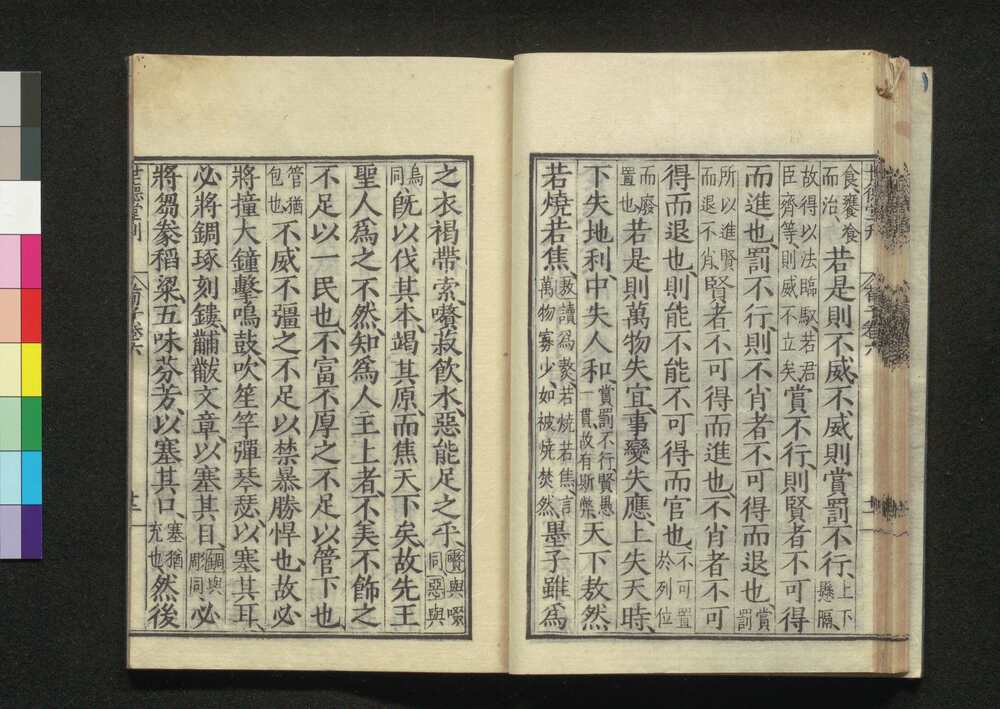 世德堂刊
荀子卷六
食饔飱
而治
若是則不威、不威則賞罰不行、
上下
懸隔、
故得以法臨馭、若君
臣齊等、則威不立矣
賞不行、則賢者不可得
而進也、罰不行、則不肖者不可得而退也、
賞
罰
所以進賢
而退不肖
賢者不可得而進也、不肖者不可
得而退也、則能不能不可得而官也、
不可置
於列位
而廢
置也
若是則萬物失宜、事變失應、上失天時、
下失地利、中失人和、
賞罰不行、賢愚
一貫、故有斯弊
天下敖然
若燒若焦、
敖讀爲熬、若燒若焦、言
萬物寡少、如被燒焚然
墨子雖爲
之衣褐帶索、嚽菽飲水、惡能足之乎、
嚽與啜
同惡與
烏
同
旣以伐其本、竭其原、而焦天下矣、故先王
聖人爲之不然、知爲人主上者、不美不飾之
不足以一民也、不富不厚之不足以管下也
管猶
包也
不威不彊之不足以禁暴勝悍也、故必
將撞大鐘、擊鳴鼓、吹笙竽、彈琴瑟、以塞其耳、
必將錭琢刻鏤、黼黻文章、以塞其目、
錭與
彫同
必
將芻豢稻粱、五味芬芳、以塞其口、
塞猶
充也
然後
世德堂刊
荀子卷六